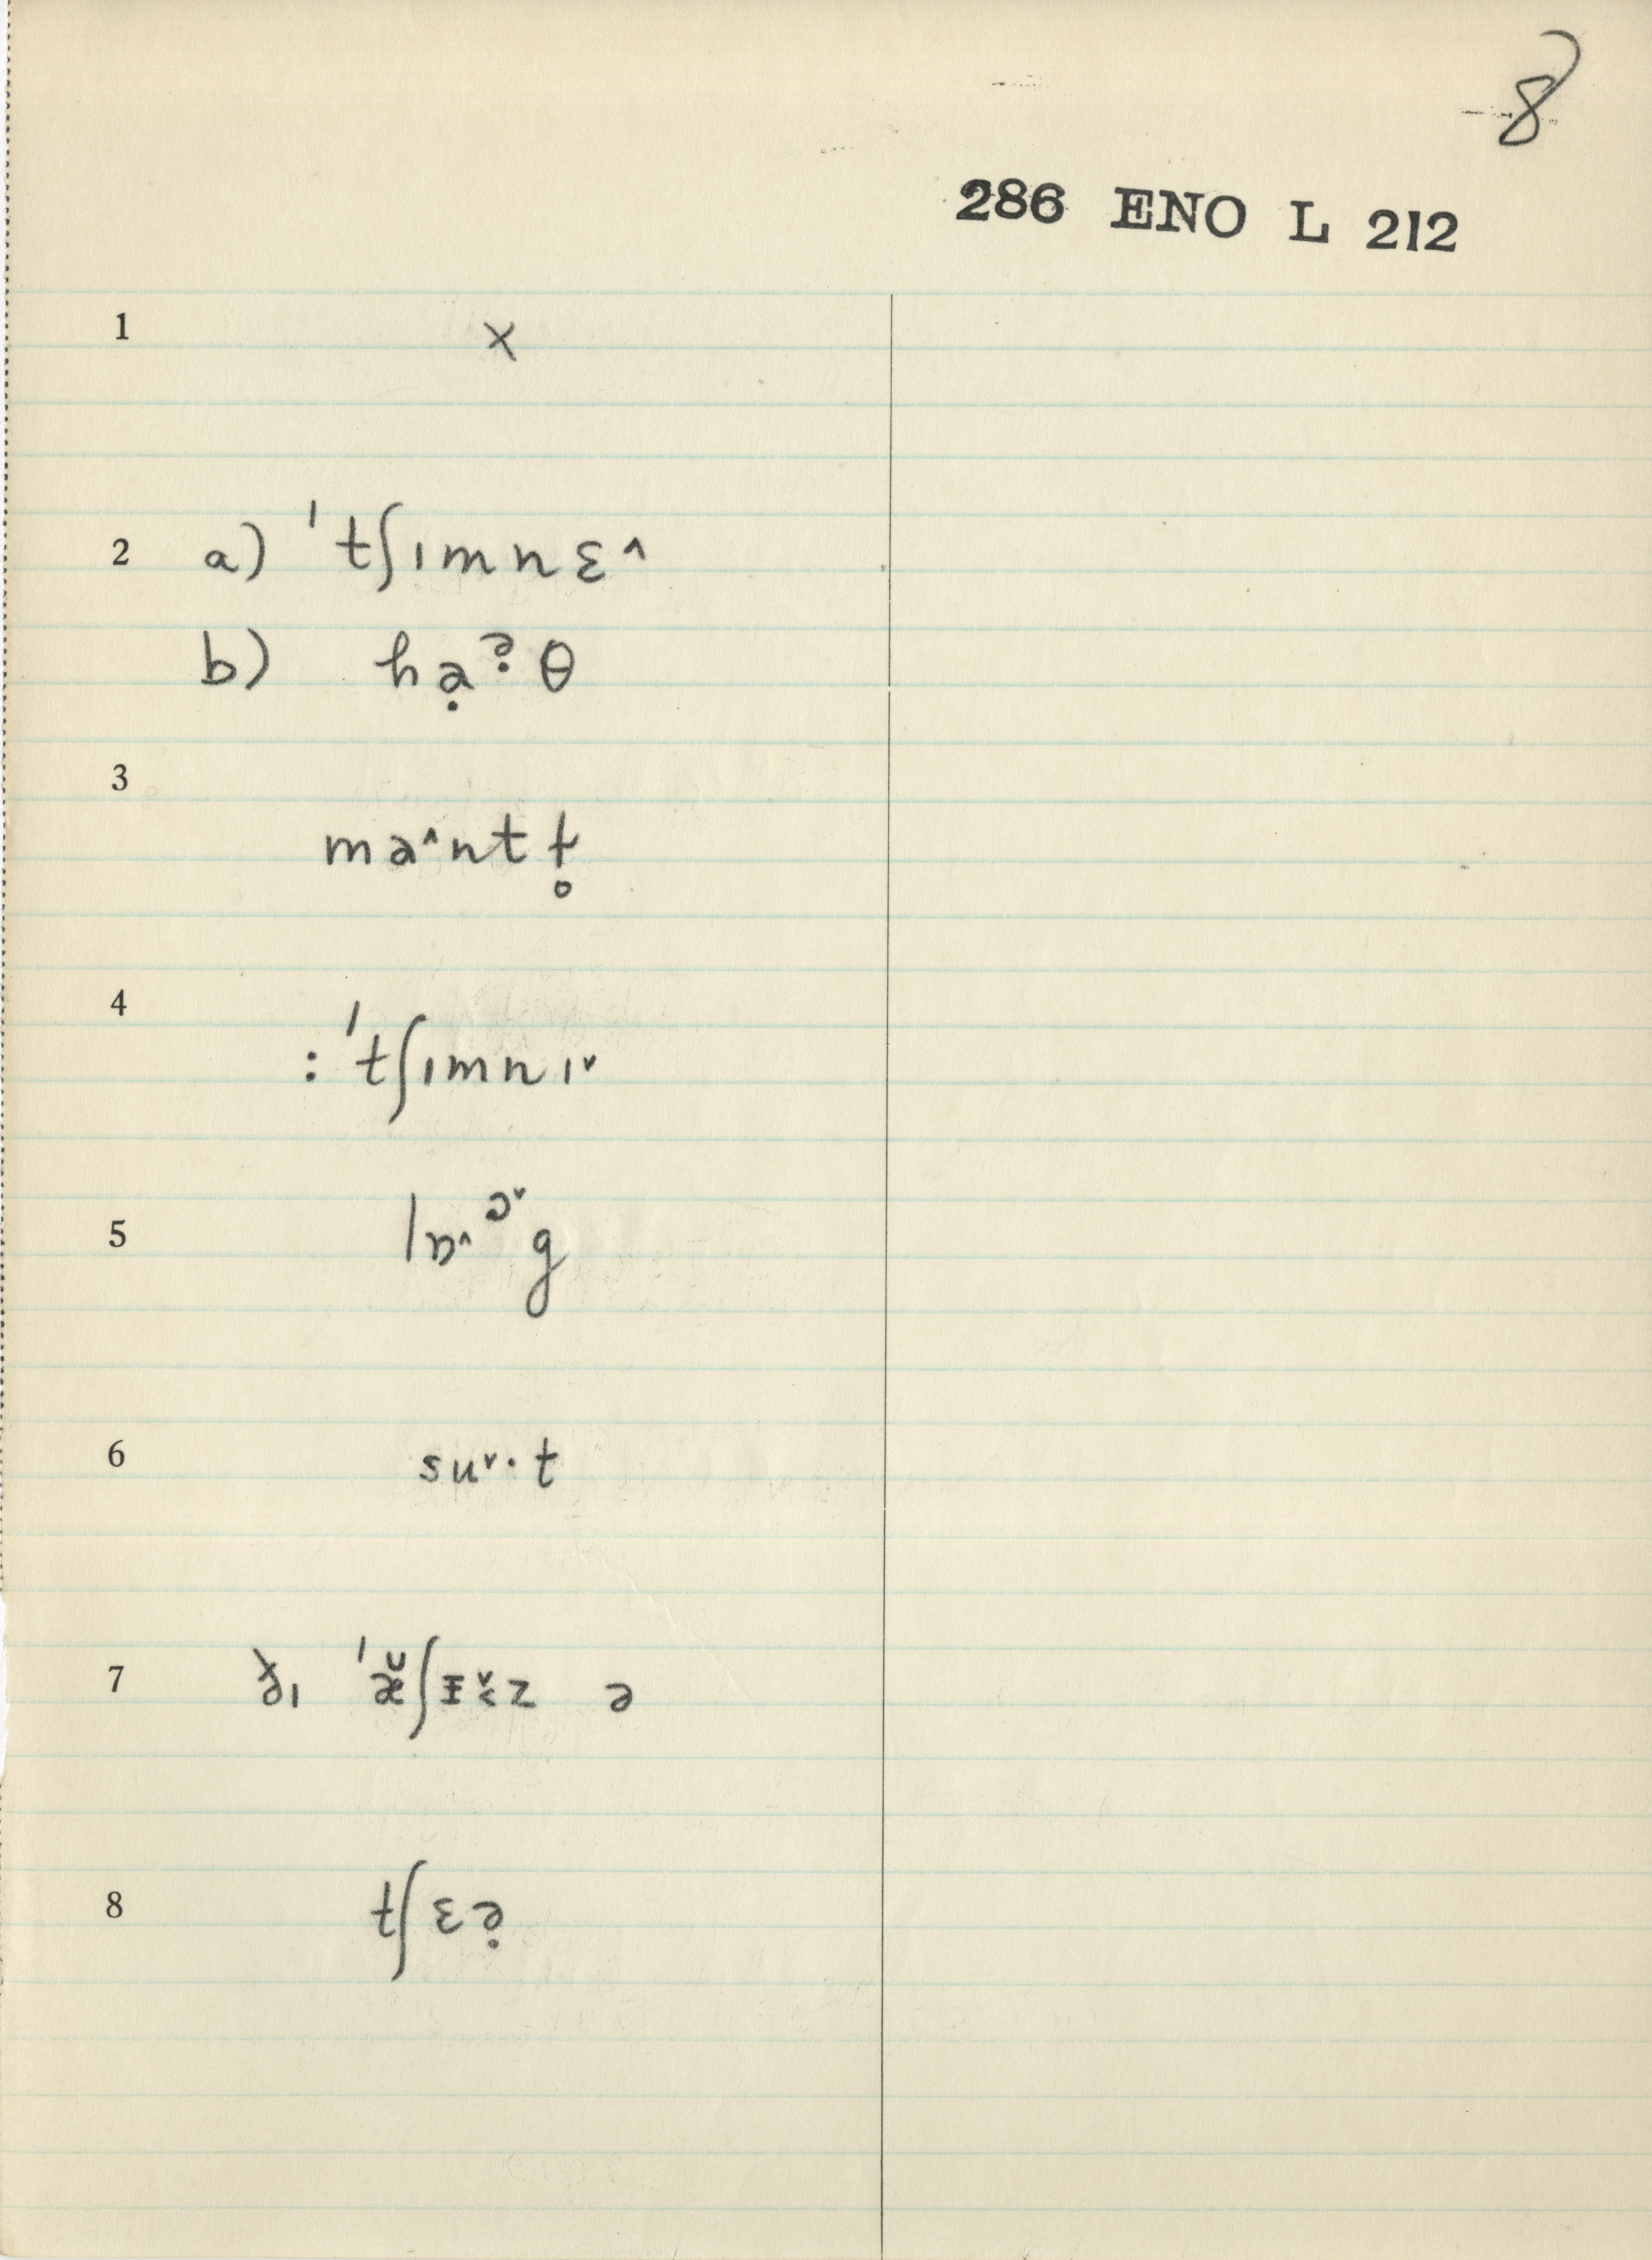 8
286 ENO L 212
1 x
2 a) ˈtʃɪmnɛ˄
b) hạᵊ̣θ
3 ma˄ntɫ̥
4 : ˈtʃɪmnɪ˅
5 lɒ˄ᵓ˅g
6 su˅·t
7 ðɪ ˈæ̆ʃɪz ə
8 tʃɛə̣